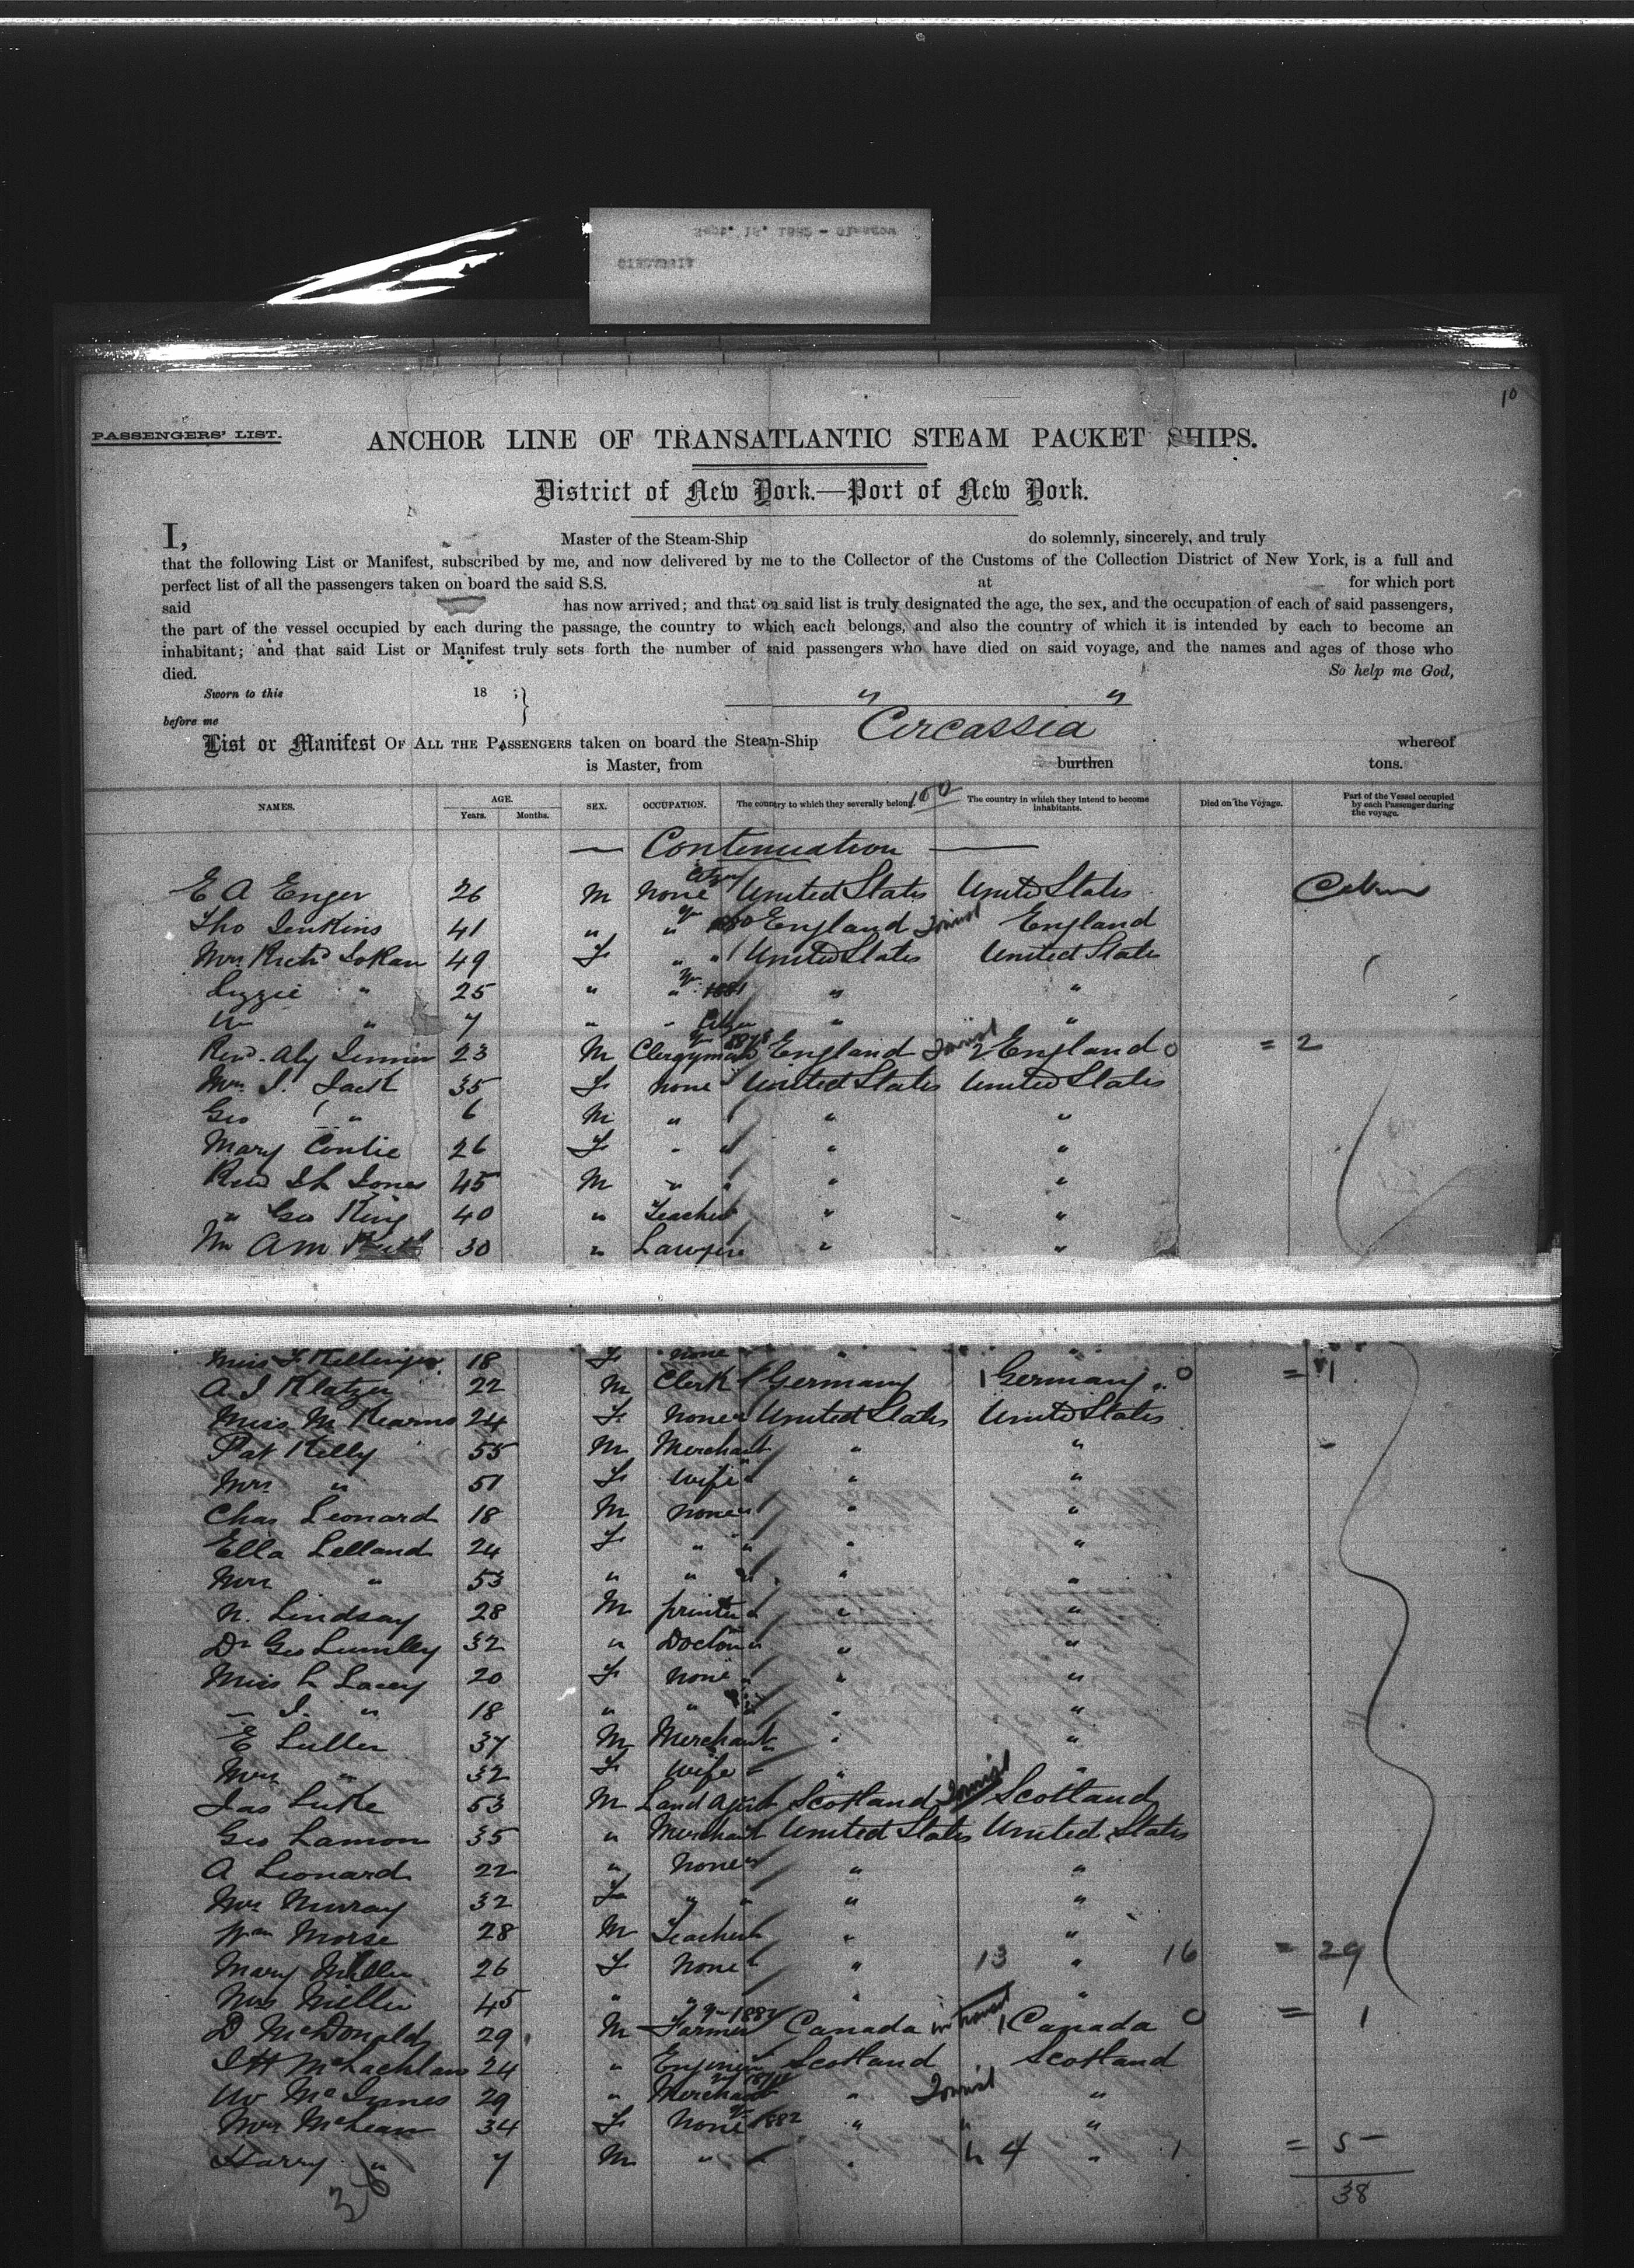 10
PASSENGERS' LIST.
ANCHOR LINE OF TRANSATLANTIC STEAM PACKET SHIPS.
District of New York.—Port of New York.
I, Master of the Steam-Ship do solemnly, sincerely, and truly
that the following List or Manifest, subscribed by me, and now delivered by me to the Collector of the Customs of the Collection District of New York, is a full and
perfect list of all the passengers taken on board the said S.S. at for which port
said has now arrived; and that on said list is truly designated the age, the sex, and the occupation of each of said passengers,
the part of the vessel occupied by each during the passage, the country to which each belongs, and also the country of which it is intended by each to become an
inhabitant; and that said List or Manifest truly sets forth the number of said passengers who have died on said voyage, and the names and ages of those who
died. So help me God,
Sworn to this 18 ; }
before me
" "
List or Manifest OF ALL THE PASSENGERS taken on board the Steam-Ship Circassia whereof
is Master, from burthen tons.
NAMES. AGE. Years. Months. SEX. OCCUPATION. The country to which they severally belong. The country in which they intend to become inhabitants. Died on the Voyage. Part of the Vessel occupied by each Passenger during the voyage.
— Continuation —
E A Enger 26 M None United States United States
Tho Jenkins 41 " " England Tourist England
Mrs Richd 49 F " " United States United States
Lizzie " 25 " " 1881 " "
" 7 " " " "
Revd 23 M Clergyman England Tourist 2 England 0 = 2
Mrs J. Jack 35 F None United States United States
Geo " 6 M " " "
Mary 26 F " " " "
Revd Jones 45 M " " " "
" Geo King 40 " Teacher " "
Mr A M 30 " " "
Miss 18 F None " "
A. J Klatzer 22 M Clerk Germany 1 Germany 0 = 1
Miss M Kearns 24 F None United States United States
Pat Kelly 55 M Merchant " "
Mrs " 51 F Wife " "
Chas Leonard 18 M None " "
Ella Lelland 24 F " " " "
Mrs " 53 " " " "
N. Lindsay 28 M printer " "
Dr Geo Lumlley 32 " Doctor " "
Miss L Lacey 20 F None " "
" J. " 18 " " " "
E Luller 37 M Merchant " "
Mrs " 32 F Wife " "
Jas Luke 53 M Land Agent Scotland Tourist Scotland
Geo Lamon 35 " Merchant United States United States
A Leonard 22 " None " "
Mrs Murray 32 F " " " "
Wm Morse 28 M Teacher " "
Mary Miller 26 F None " 13 " 16 = 29
Mrs Miller 45 " " " "
D McDonald 29 M Farmer 1882 Canada in transit 1 Canada 0 = 1
J H McLachlan 24 " Engineer Scotland Scotland
W McInnes 29 " Merchant " Tourist "
Mrs McLean 34 F None 1882 " " "
Harry " 7 M " " 4 " 1 = 5
38